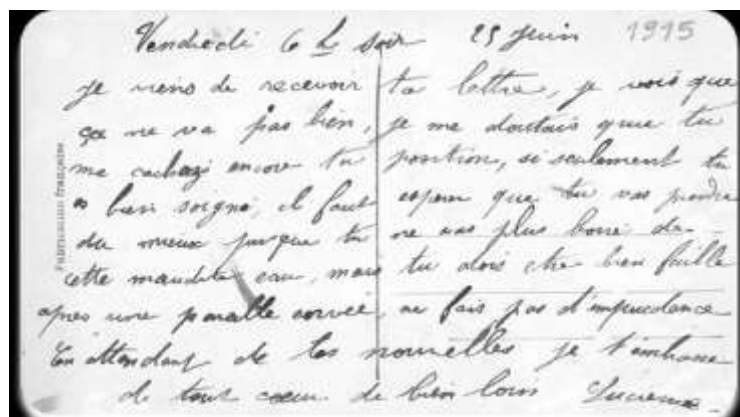 Vendredi 6 h soir 25 Juin 1915
je viens de recevoir ta lettre, je vois que
ça ne va pas bien, je me doutais que tu
me cachais encore ta position, si seulement tu
es bien soigné, il faut espérer que tu vas prendre
du mieux puisque tu ne vas plus boire de
cette maudite eau, mais tu dois être bien faible
après une pareille corvée, ne fais pas d'imprudence
En attendant de tes nouvelles je t'embrasse
de tout coeur de bien loin Lucienne
Fabrication française